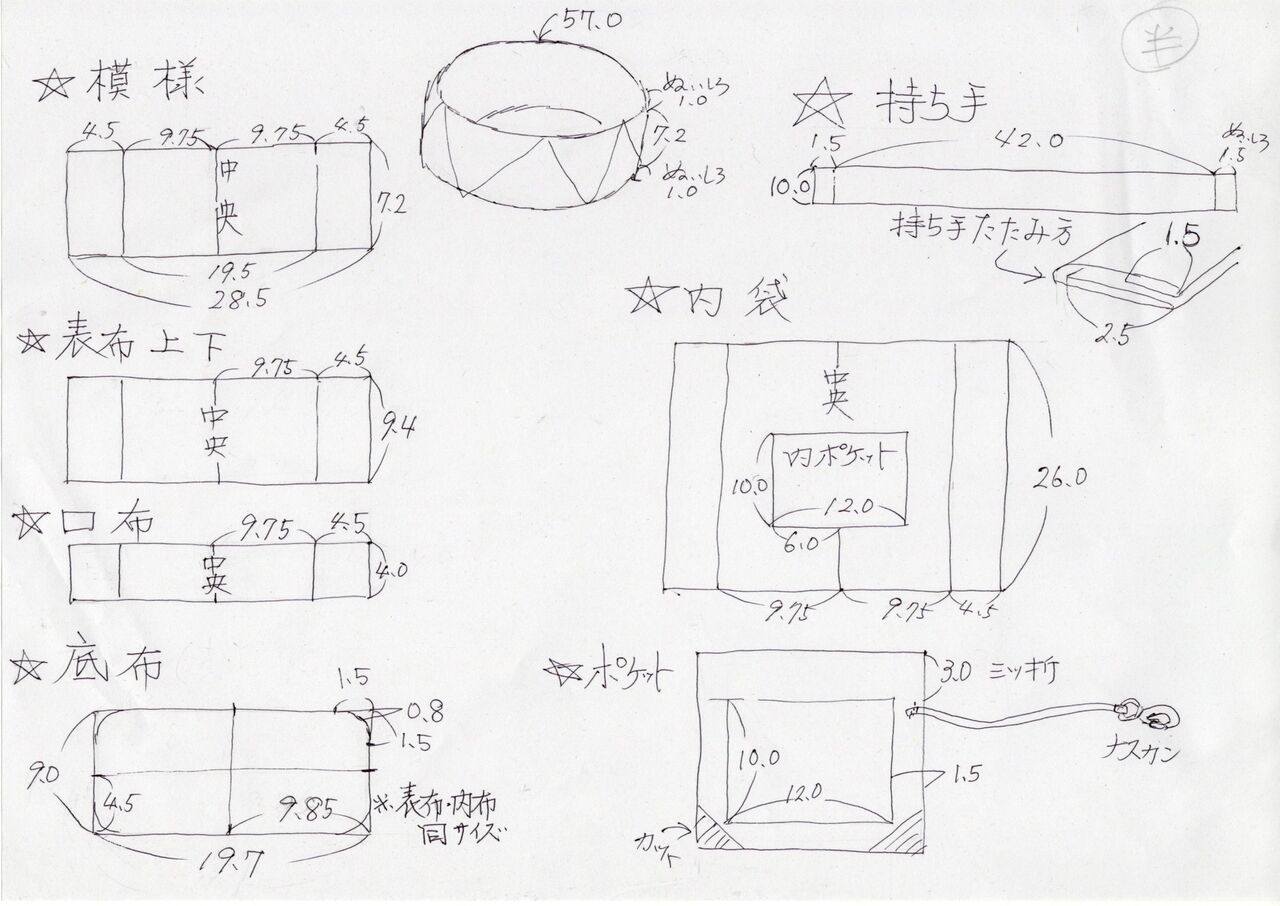 半
☆模様
4.5 9.75 9.75 4.5
中央
7.2
19.5
28.5
57.0
ぬいしろ
1.0
7.2
ぬいしろ
1.0
☆持ち手
1.5 42.0
ぬいしろ
1.5
10.0
持ち手たたみ方
1.5
2.5
☆表布上下
9.75 4.5
中央
9.4
☆口布
9.75 4.5
中央
4.0
☆内袋
中央
内ポケット
10.0
12.0
6.0
26.0
9.75 9.75 4.5
☆底布
1.5
0.8
1.5
9.0
4.5
9.85
19.7
※表布・内布
同サイズ
☆ポケット
3.0 ミツ折
10.0
12.0
1.5
カット
ナスカン